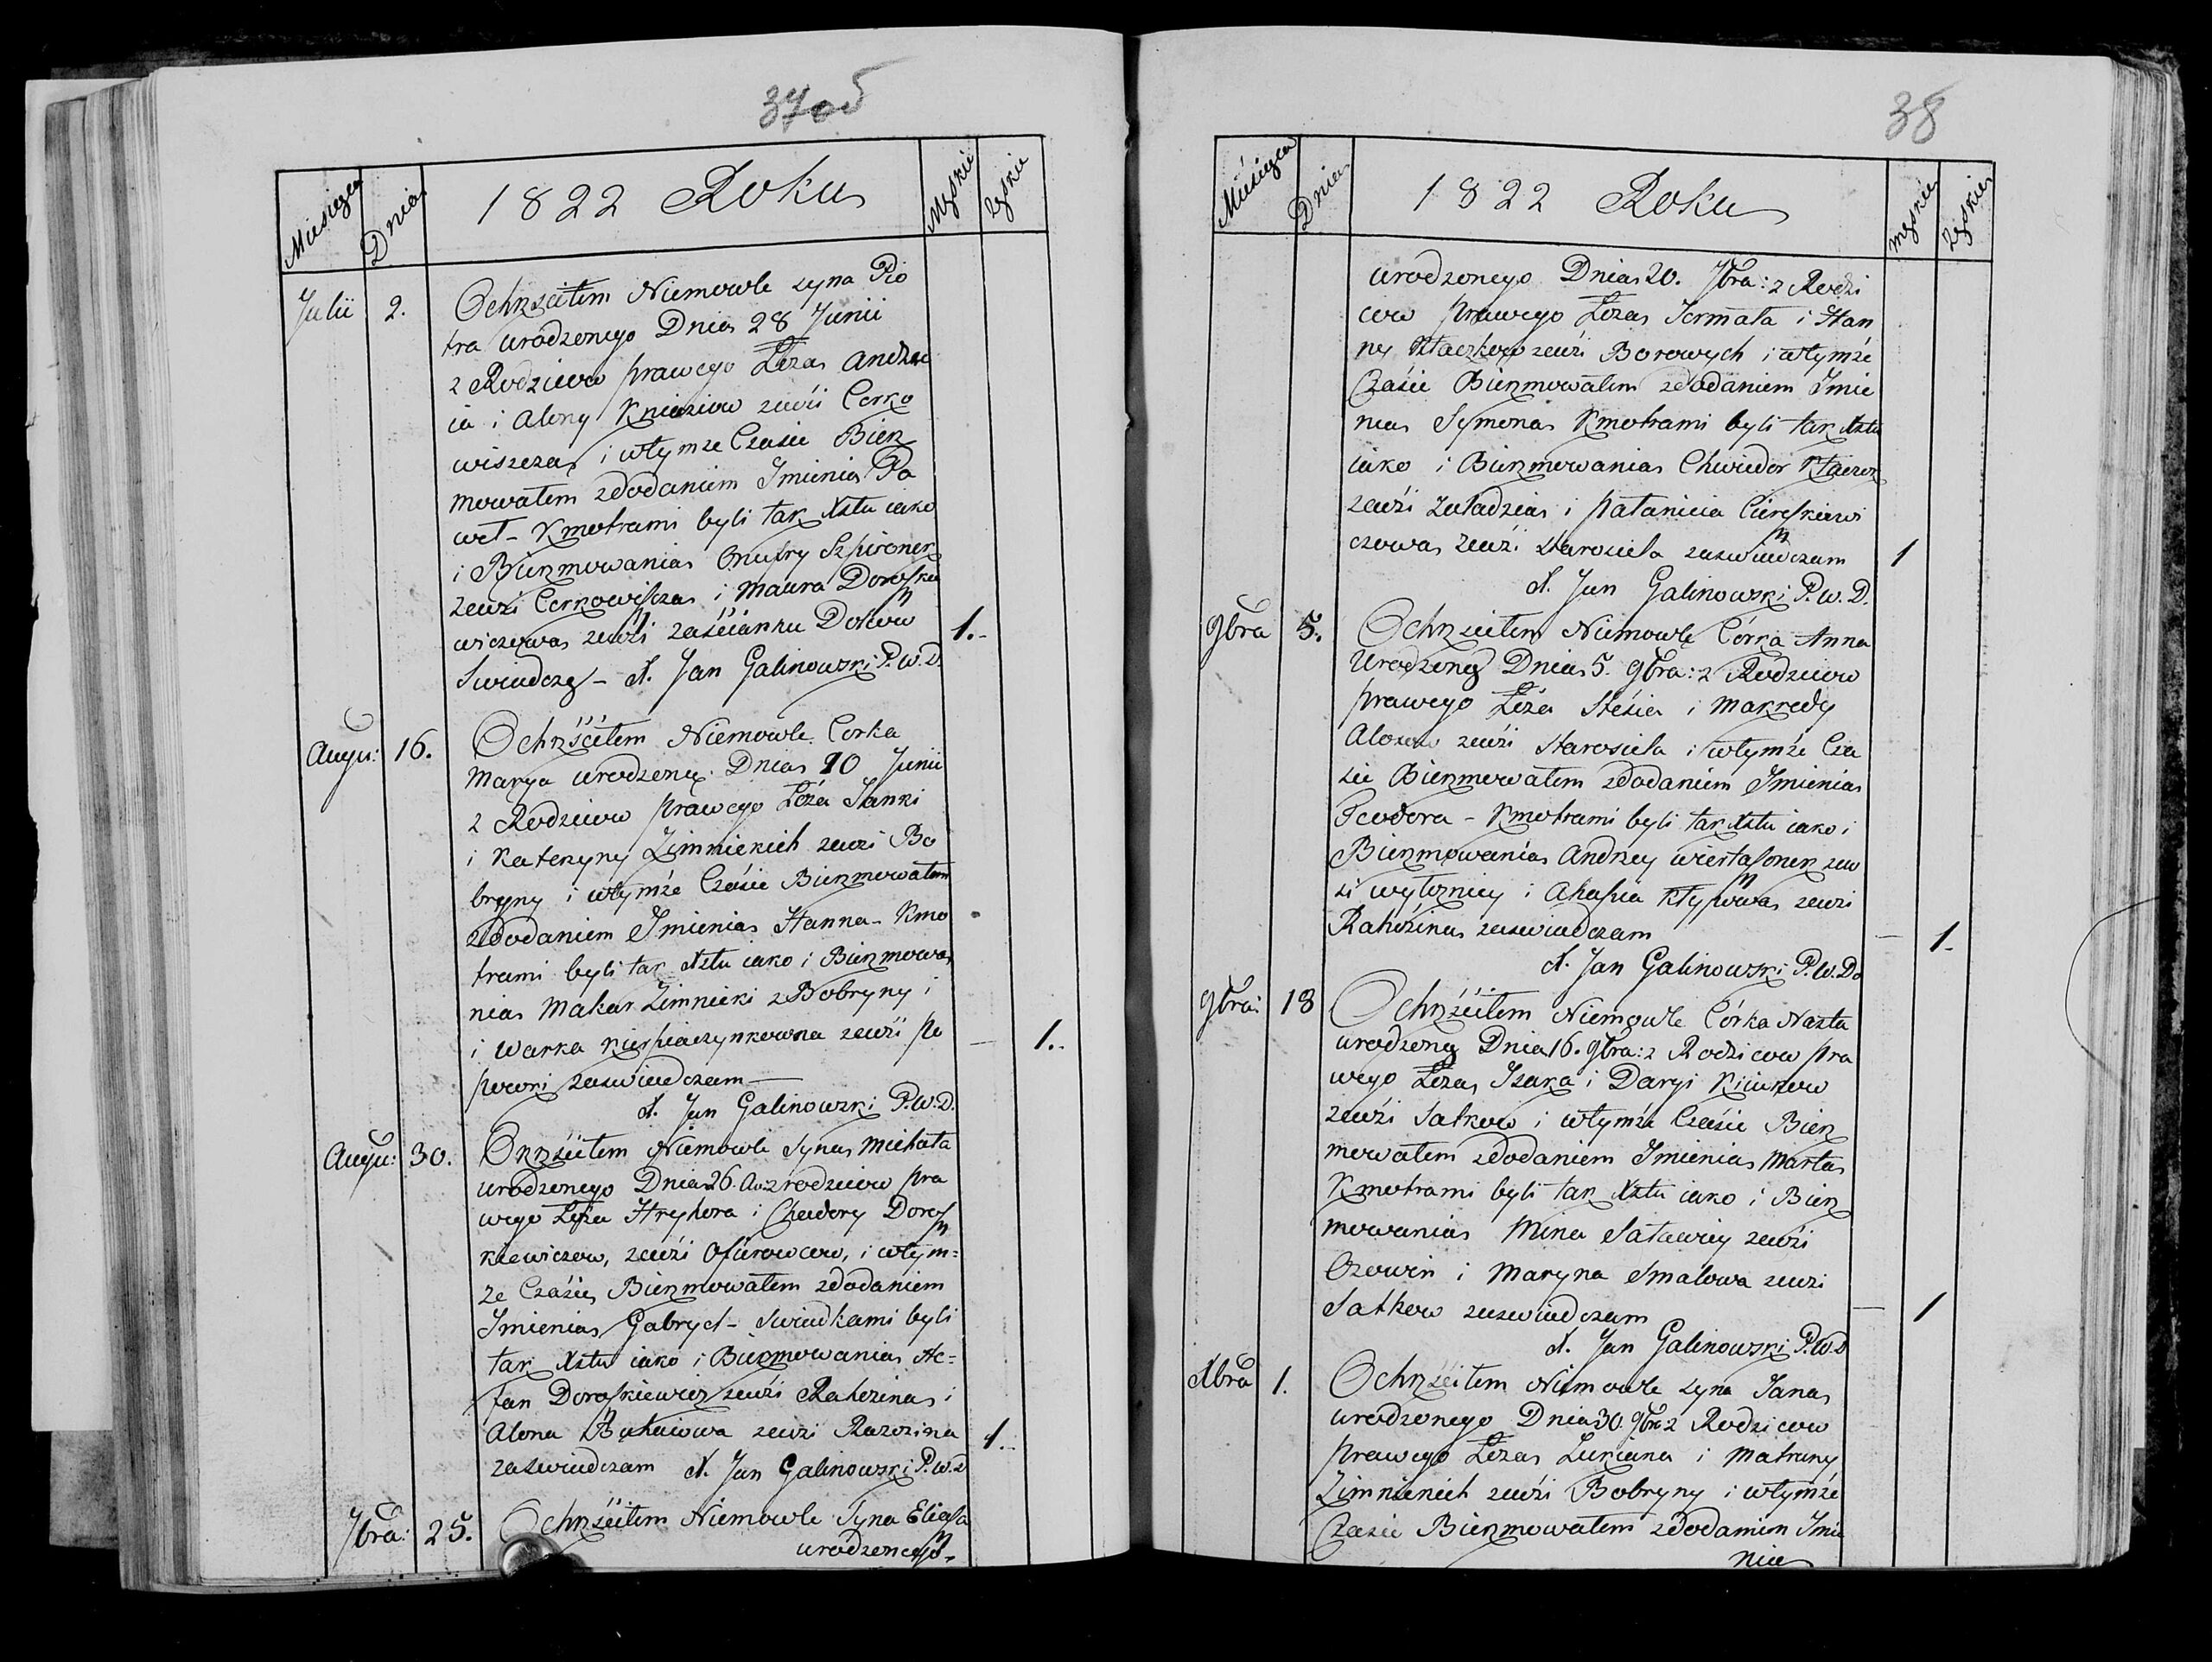 37об
Miesięca Dnia 1822 Roku Męskie Żęskie
Julii 2. Ochrzciłem Niemowle syna Pio
tra urodzonego Dnia 28 Junii
z Rodziców prawego Łoża Andrze
ia i Alony Kniaziow zewśi Cerko
wiszcza i wtymże Czasie Bierz
mowałem zdodaniem Imienia Pa
weł – Kmotrami byli tak Xztu iako
i Bierzmowania Onufry Szpironek
zewśi Cerkowiszcza i Maura Doroszke
wiczowa zewśi zaścianku
Swiadczę – X. Jan Galinowski P.W.D. 1.-
Augu: 16. Ochrzściłem Niemowle Corka
Marya urodzoną Dnia 10 Junii
z Rodzicow prawego Łoża Janki
i Kateryny Zimnickich zewsi Bo
bryny i wtymże Czasie Bierzmowałem
zdodaniem Imienia Hanna – Kmo
trami byli tak Xztu iako i Bierzmowa
nia Makar Zimnicki z Bobryny i
i Warka zewśi Po
powki zaswiadczam — 1.-
X. Jan Galinowski P.W.D.
Augu: 30. Orzściłem Niemowle Syna Michała
urodzonego Dnia 26. Au: z rodzicow pra
wego Łoża Hryhora i Chwedory Doros
kiewiczow, zewśi i wtym=
że Czasie Bierzmowałem zdodaniem
Imienia Gabryel – Swiadkami byli
tak Xztu iako i Bierzmowania Ste=
fan Doroskiewicz zewśi Rahozina i
Alona zewsi Razozina 1.-
zaswiadczam X. Jan Galinowski P.W.D
7bra: 25. Ochrzściłem Niemowle Syna Eliasza
urodzonego
38
Miesięca Dnia 1822 Roku męskie żęskie
urodzonego Dnia 20. 7bra: z Rodzi
cow prawego Łoża Jermała i Han
ny Kłaczkow zewśi Borowych i wtymże
Czasie Bierzmowałem zdodaniem Imie
nia Symona Kmotrami byli tak Xztu
iako i Bierzmowania Chwiedor Kłaczek
zewśi i Pałanieia
czowa zewśi Starosiela zaswiadczam 1
X. Jan Galinowski P.W.D.
9bra 5. Ochrzciłem Niemowlę Córka Anna
Urodzoną Dnia 5. 9bra: z Rodzicow
prawego Łoża i Makredy
zewśi Starosiela i wtymże Cza
sie Bierzmowałem zdodaniem Imienia
Teodora – Kmotrami byli tak Xztu iako i
Bierzmowania Andrzey zew
śi i Ahafia zewsi
Rahozina zaswiadczam — 1.
X. Jan Galinowski P.W.D
9bra: 18 Ochrzściłem Niemowle Córka Nasta
urodzoną Dnia 16. 9bra: z Rodzicow pra
wego Łoża Isaka i Daryi
zewśi Satkow i wtymże Czasie Bierz
mowałem zdodaniem Imienia Marta
Kmotrami byli tak Xztu iako i Bierz
mowania Mina zewśi
i Maryna Smalowa zewsi
Satkow zaswiadczam — 1
X. Jan Galinowski P.W.D
Xbra 1. Ochrzściłem Niemowle syna Jana
urodzonego Dnia 30. 9bra: z Rodzicow
prawego Łoża Lukiana i Matruny
Zimnickich zewśi Bobryny i wtymże
Czasie Bierzmowałem zdodaniem Imie
nia